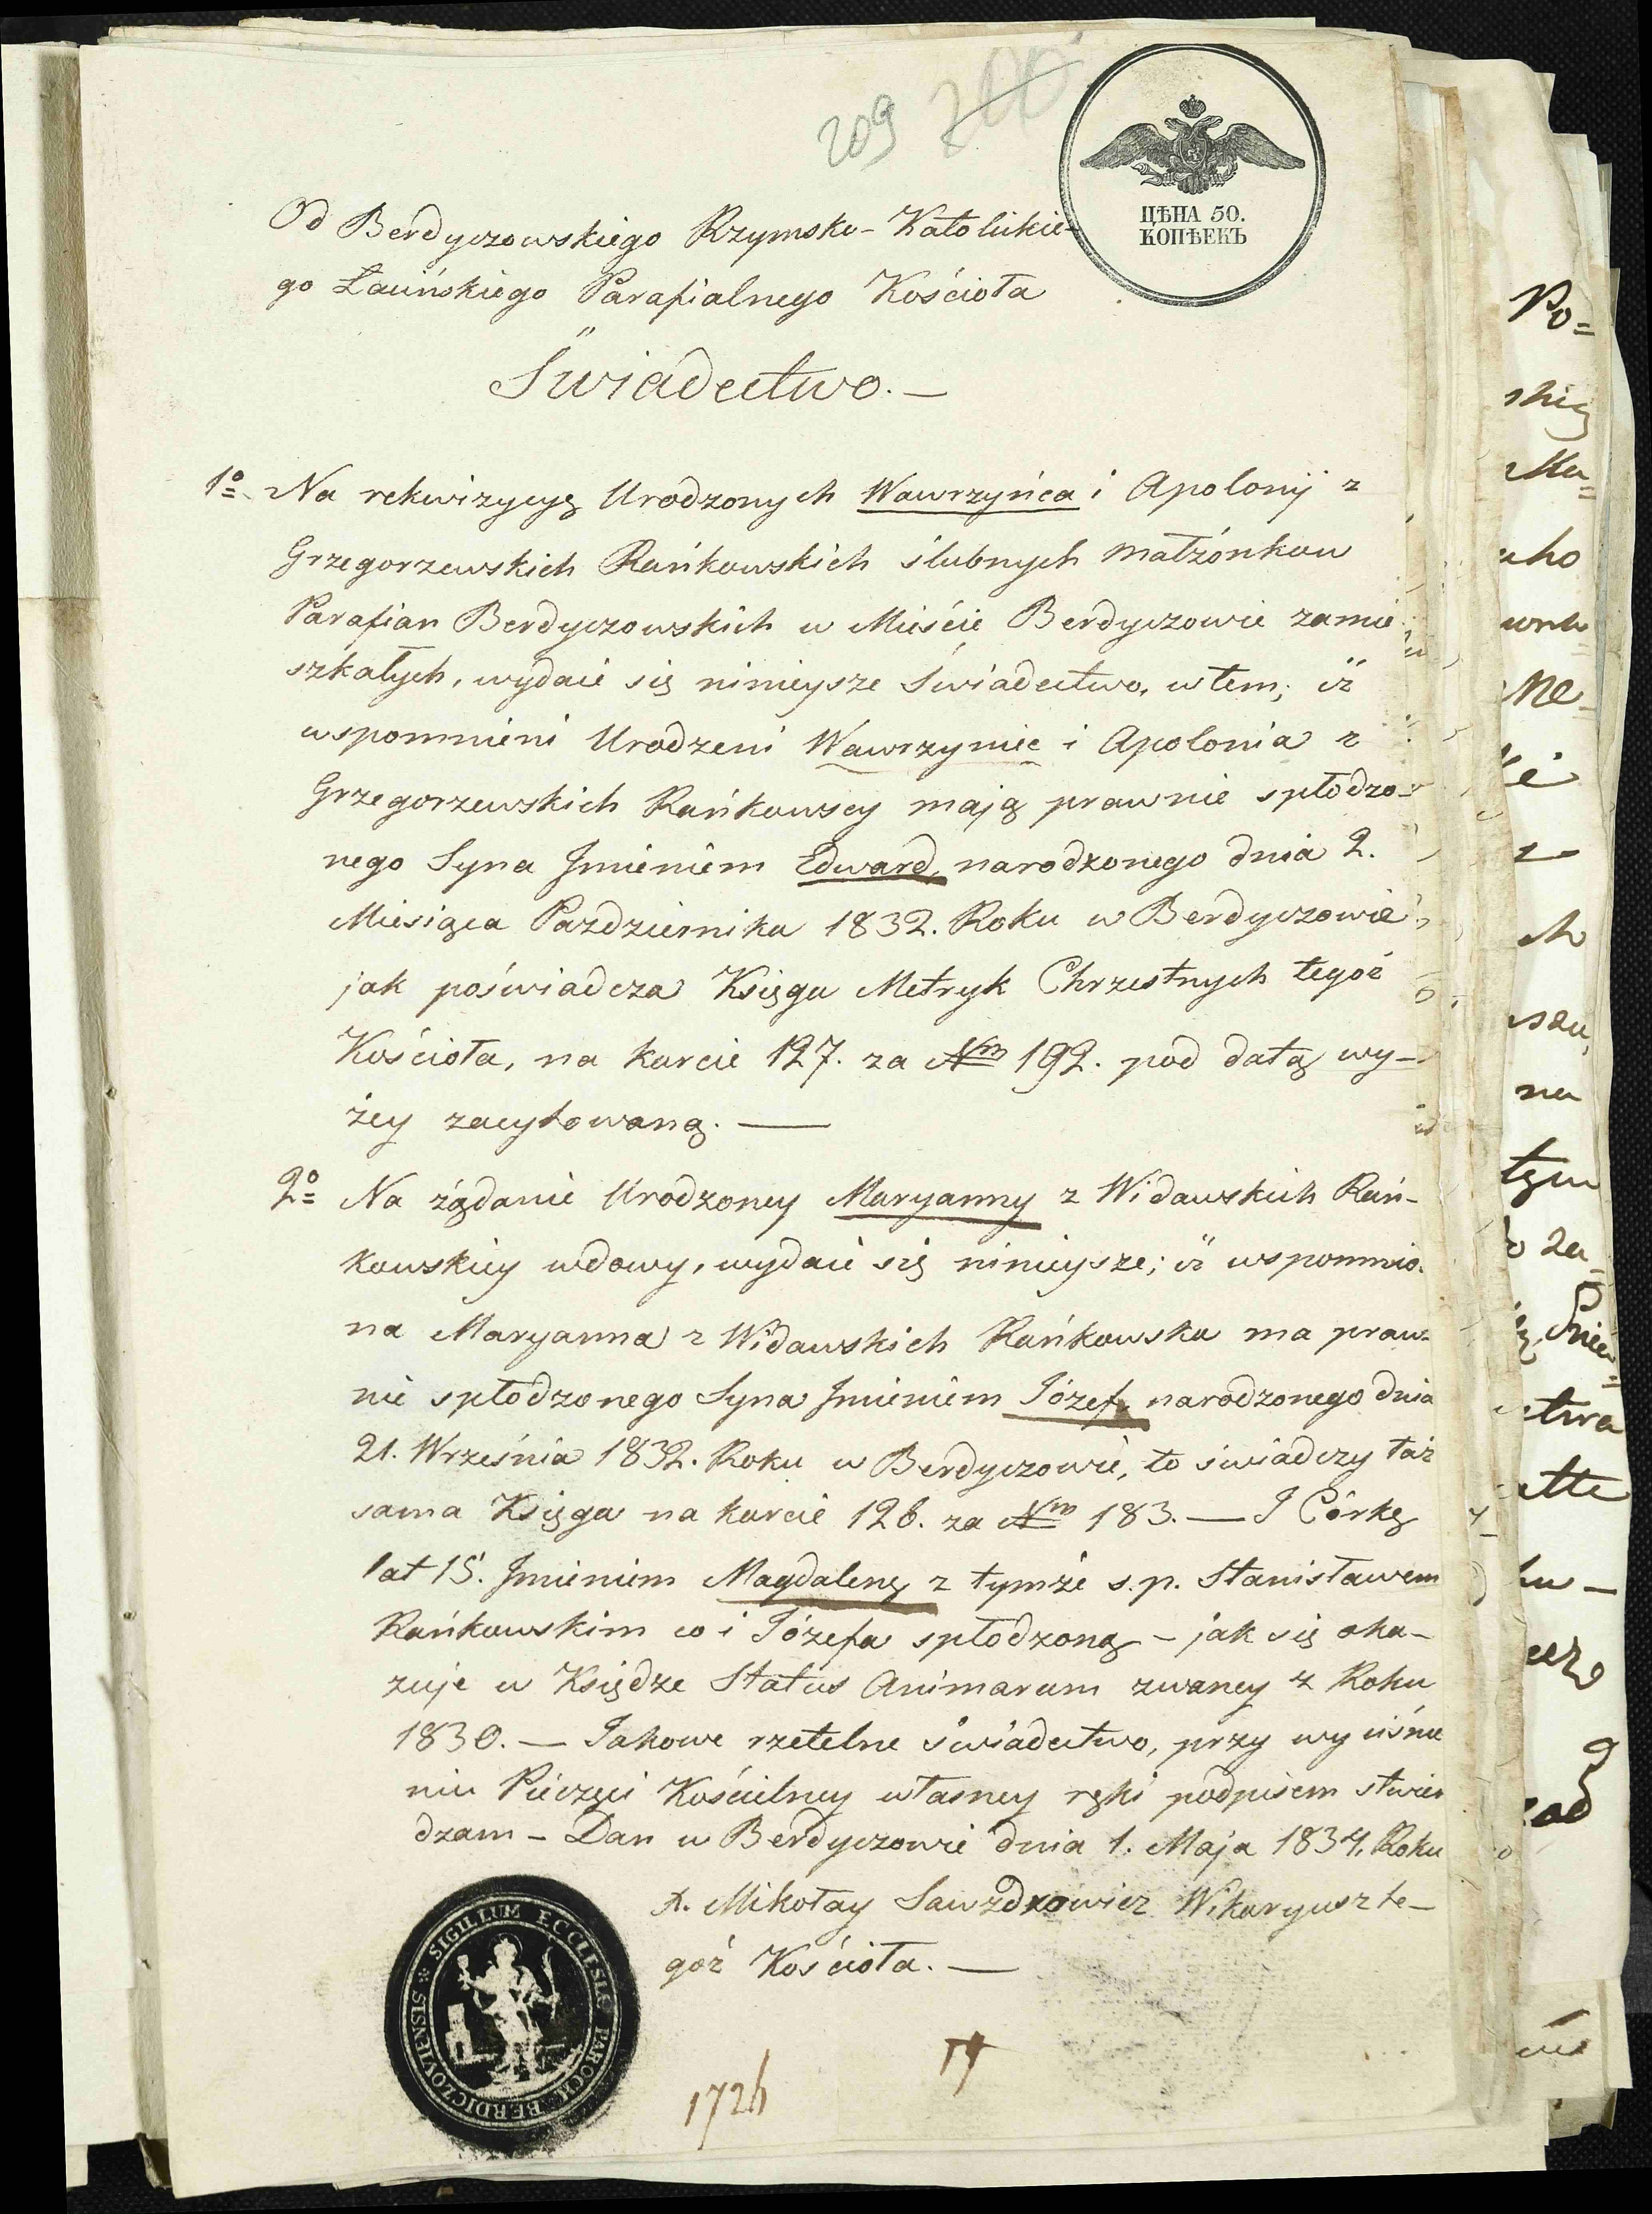 209 200
ЦѢНА 50.
КОПѢЕКЪ
Od Berdyczowskiego Rzymsko-Katolickie-
go Łacińskiego Parafialnego Kościoła
Swiadectwo.—
1º Na rekwizycyę Urodzonych Wawrzyńca i Apolonij z
Grzegorzewskich Rańkowskich ślubnych małżonkow
Parafian Berdyczowskich w Mieście Berdyczowie zamie
szkałych, wydaie się ninieysze świadectwo, w tem; iż
wspomnieni Urodzeni Wawrzyniec i Apolonia z
Grzegorzewskich Rańkowscy mają prawnie spłodzo-
nego Syna Jmieniem Edward, narodzonego dnia 2.
Miesiąca Pazdziernika 1832. Roku w Berdyczowie
jak poświadcza Księga Metryk Chrzestnych tegoż
Kościoła, na karcie 127. za Nm 192. pod datą wy-
żey zacytowaną.—
2º Na żądanie Urodzoney Maryanny z Widawskich Rań-
kowskiey wdowy, wydaie się ninieysze; iż wspomnio-
na Maryanna z Widawskich Rańkowska ma praw-
nie spłodzonego Syna Jmieniem Józef, narodzonego dnia
21. Września 1832. Roku w Berdyczowie, to świadczy taż
sama Księga na karcie 126. za Nm 183.— I Córkę
lat 15. Jmieniem Magdalenę z tymże s.p. Stanisławem
Rańkowskim co i Józefa spłodzoną - jak się oka-
zuje w Księdze Status Animarum zwaney z Roku
1830.— Jakowe rzetelne świadectwo, przy wyciśnie
niu Pieczęci Kościelney własney ręki podpisem stwier
dzam - Dan w Berdyczowie dnia 1. Maja 1834. Roku
X. Mikołay Sawzdrowicz Wikaryusz te-
goż Kościoła.—
SIGILLUM ECCLESIÆ PAROCH: BERDICZOVIENSIS